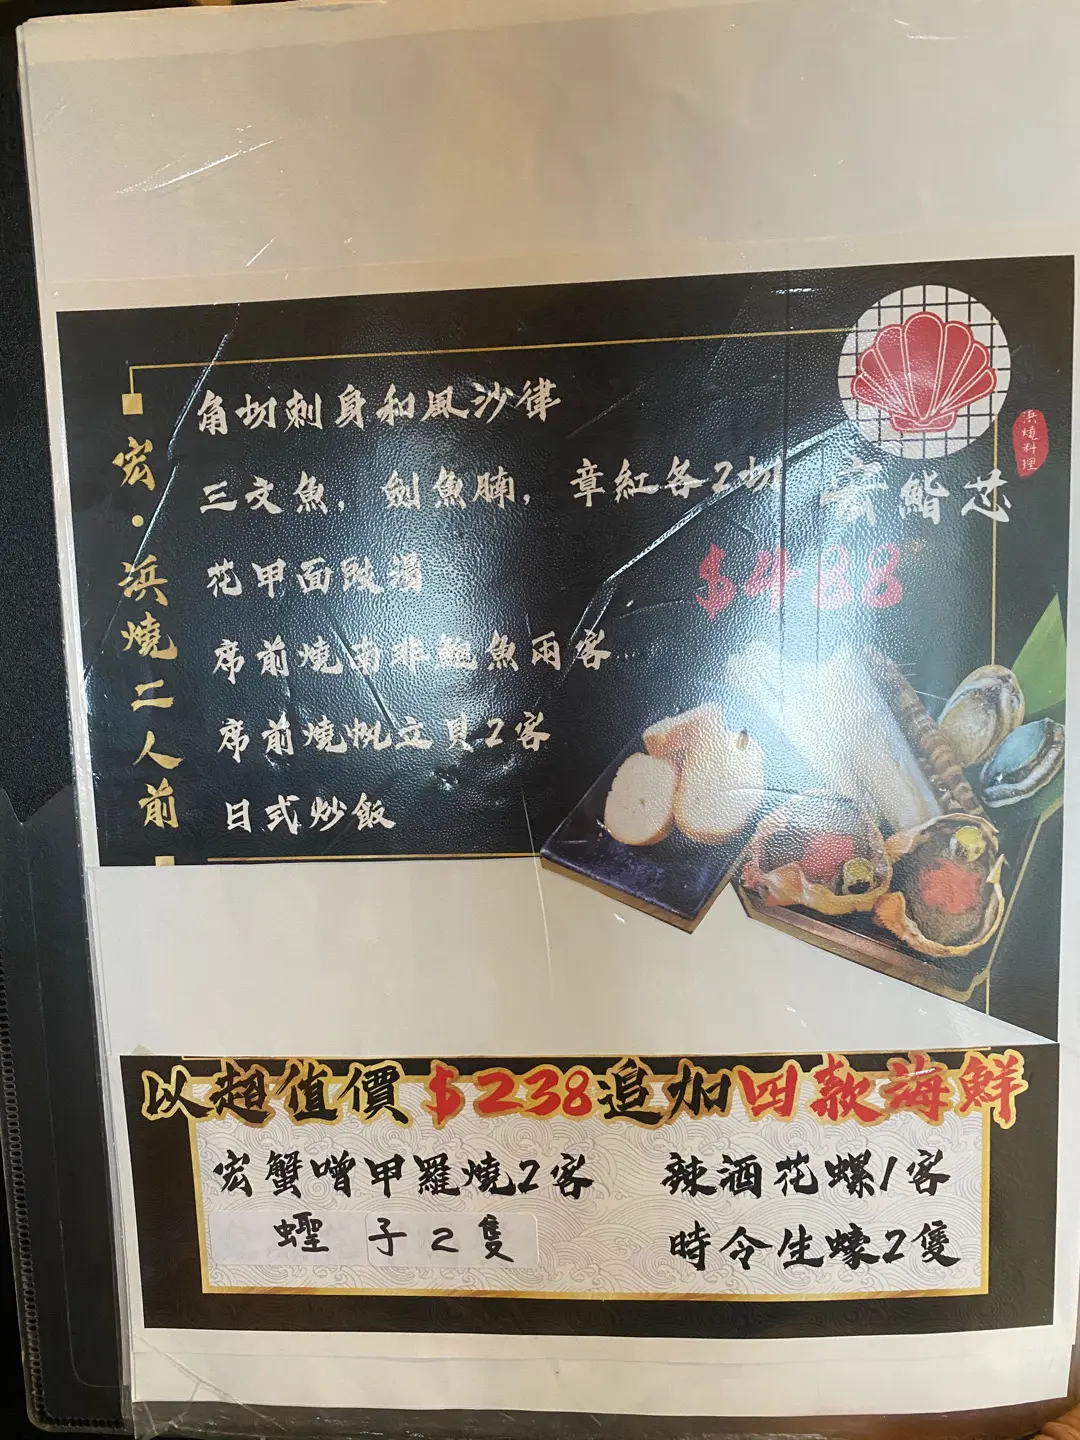 宏·浜燒二人前
角切刺身和風沙律
三文魚，劍魚腩，章紅各2切
花甲面豉湯
席前燒南非鮑魚兩客
席前燒帆立貝2客
日式炒飯
浜燒料理
宏鮨芯
$488
以超值價$238追加四款海鮮
宏蟹噌甲羅燒2客
辣酒花螺1客
蟶子2隻
時令生蠔2隻